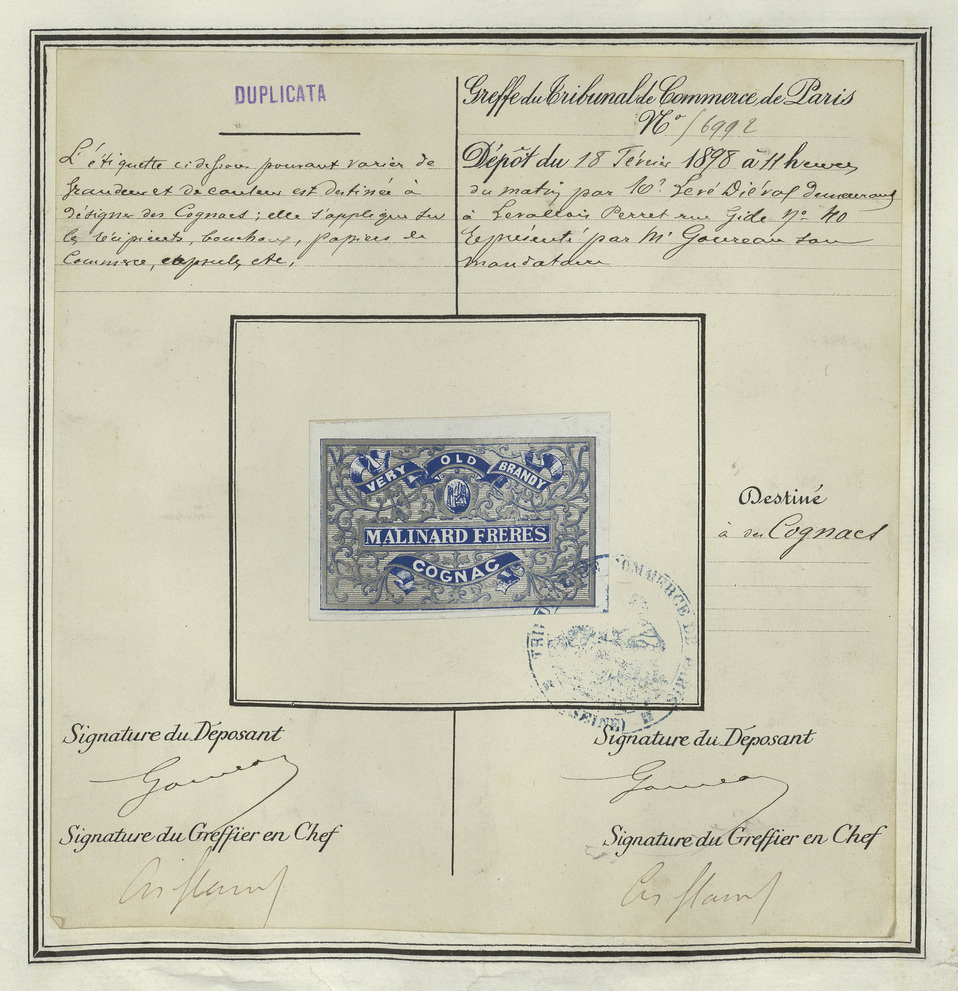 DUPLICATA
L'étiquette ci dessous pouvant varier de
grandeur et de couleur est destinée à
désigner des Cognacs ; elle s'applique sur
les récipients, bouchons, papiers de
Commerce, capsules, etc.
Greffe du Tribunal de Commerce de Paris
N° 56992
Dépôt du 18 Février 1898 à 11 heures
du matin par Mr Levé Diéval demeurant
à Levallois Perret rue Gide No 40
Représenté par Mr Goureau son
mandataire
VERY OLD BRANDY
MALINARD FRERES
COGNAC
Destiné
à des Cognacs
TRIBUNAL DE COMMERCE DE PARIS
(SEINE)
Signature du Déposant
Signature du Déposant
Signature du Greffier en Chef
Signature du Greffier en Chef